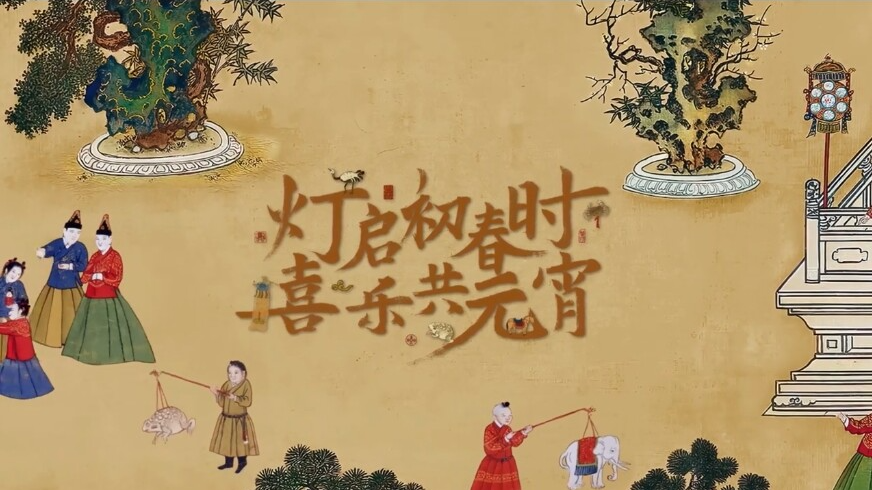 灯启初春时
喜乐共元宵